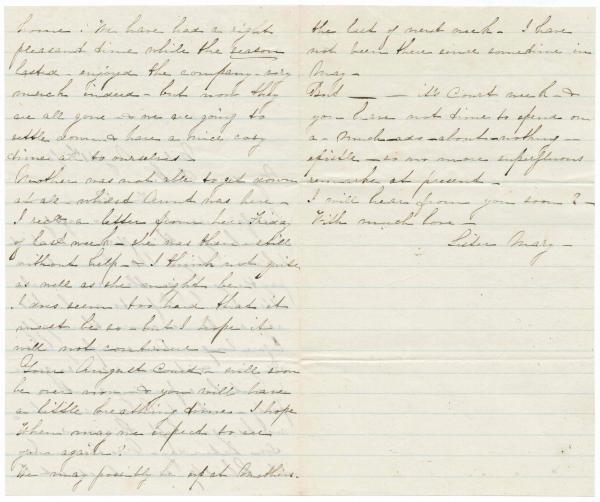 home! We have had a right
pleasant time while the season
lasted - enjoyed the company - very
much indeed - but now they
are all gone - & we are going to
settle down & have a nice cosy
time all to ourselves.
Mother was not able to get down
at all - whilst Aunt was here -
I rec'd a letter from her Friday
of last week - she was then - still
without help - & I think not quite
as well as she might be -
It does seem too hard that it
must be so - but I hope it
will not continue -
Your August Court - will soon
be over now - & you will have
a little breathing time - I hope
When may we expect to see
you again?
We may possibly be up at Mother's -
the last of next week - I have
not been there since sometime in
May -
But — - it's Court week - &
you have not time to spend on
a - much - ado - about - nothing -
epistle - so no more superfluous
remarks at present -
I will hear from you soon? -
With much love -
Sister Mary -